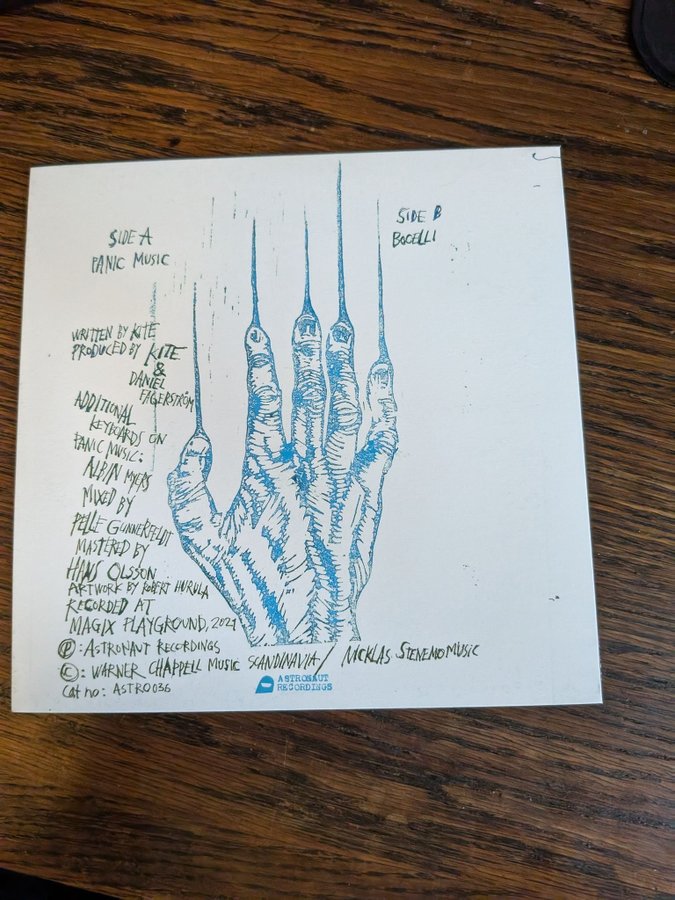 SIDE A
PANIC MUSIC
SIDE B
BOCELLI
WRITTEN BY KITE
PRODUCED BY KITE
&
DANIEL
FAGERSTRÖM
ADDITIONAL
KEYBOARDS ON
PANIC MUSIC:
ALBIN MYERS
MIXED BY
PELLE GUNNERFELDT
MASTERED BY
HANS OLSSON
ARTWORK BY ROBERT HURULA
RECORDED AT
MAGIX PLAYGROUND, 2021
Ⓟ: ASTRONAUT RECORDINGS
©: WARNER CHAPPELL MUSIC SCANDINAVIA/ NICKLAS STENEMO MUSIC
Cat no: ASTRO036
ASTRONAUT
RECORDINGS